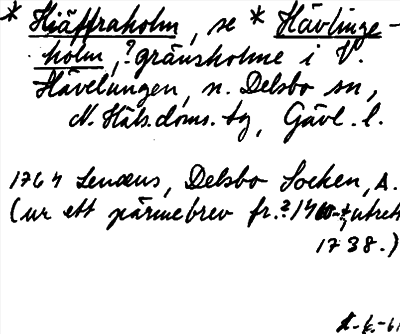 * Hjäffraholm, se * Hävlinge-
holm, ? gränsholme i V.
Hävelungen, n. Delsbo sn,
N. Häls. doms. tg, Gävl. l.
1764 Lenæus, Delsbo Socken, A.
(ur ett pärmebrev fr. ? 
1738.)